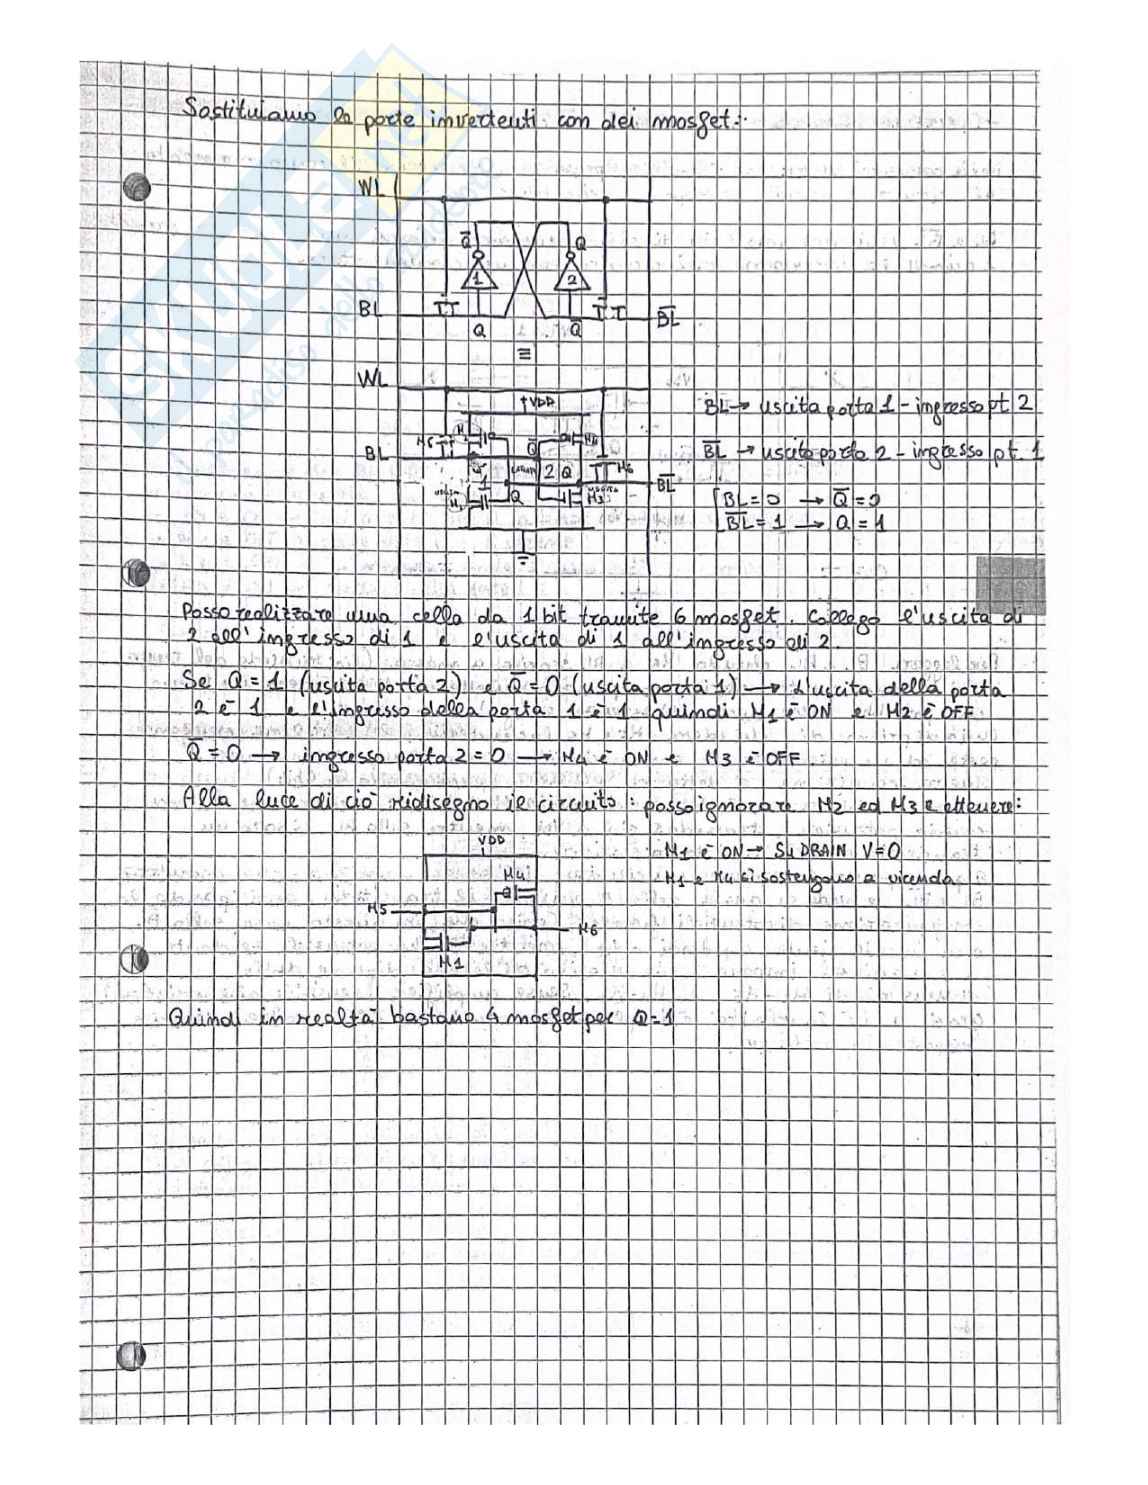 Sostituiamo le porte invertenti con dei mosfet:
WL
Q̅ Q
1 2
BL B̅L̅
Q Q̅
≡
WL
VDD
M5 M4
Q̅
BL
2 Q M6
1 B̅L̅
Q M3
BL → uscita porta 1 - ingresso pt 2
B̅L̅ → uscita porta 2 - ingresso pt. 1
BL = 0 → Q̅ = 0
B̅L̅ = 1 → Q = 1
Posso realizzare una cella da 1 bit tramite 6 mosfet. Collego l'uscita di
2 all'ingresso di 1 e l'uscita di 1 all'ingresso di 2.
Se Q = 1 (uscita porta 2) e Q̅ = 0 (uscita porta 1) → L'uscita della porta
2 è 1 e l'ingresso della porta 1 è 1 quindi M1 è ON e M2 è OFF
Q̅ = 0 → ingresso porta 2 = 0 → M4 è ON e M3 è OFF
Alla luce di ciò ridisegno il circuito: posso ignorare M2 ed M3 e ottenere:
VDD
M4
M5
M6
M1
M1 è ON → Su DRAIN V=0
M1 e M4 si sostengono a vicenda
Quindi in realtà bastano 4 mosfet per Q=1